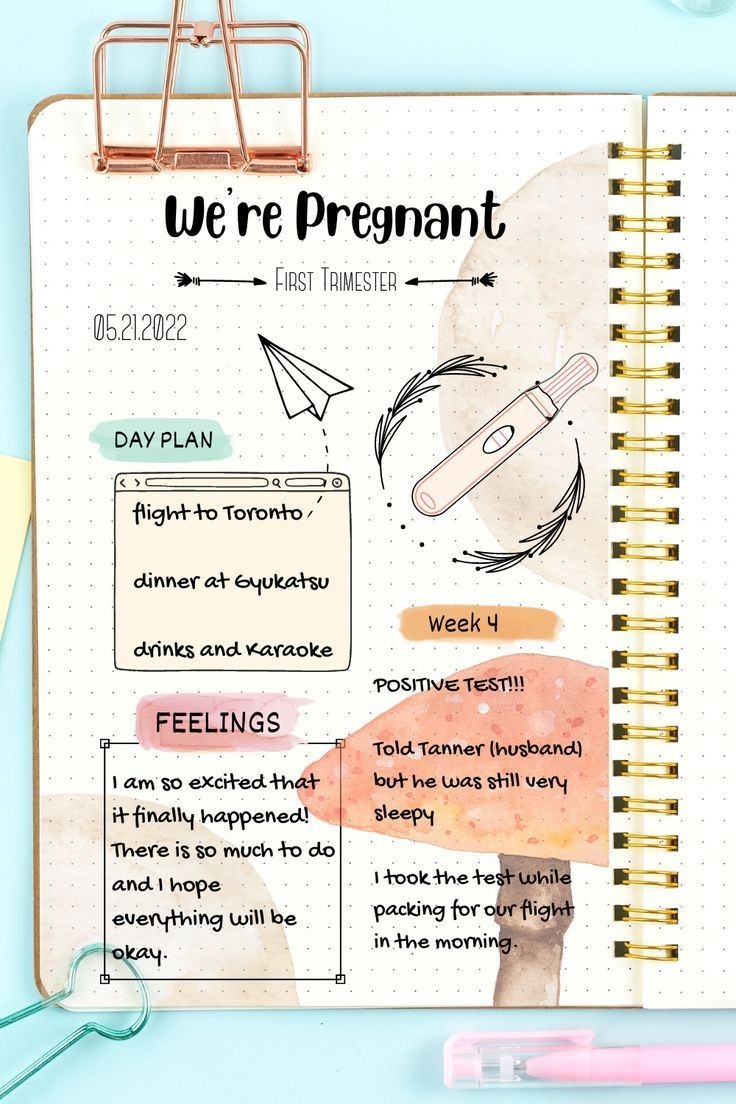 We're Pregnant
First Trimester
05.21.2022
DAY PLAN
flight to Toronto
dinner at Gyukatsu
drinks and Karaoke
FEELINGS
I am so excited that
it finally happened!
There is so much to do
and I hope
everything will be
okay.
Week 4
POSITIVE TEST!!!
Told Tanner (husband)
but he was still very
sleepy
I took the test while
packing for our flight
in the morning.